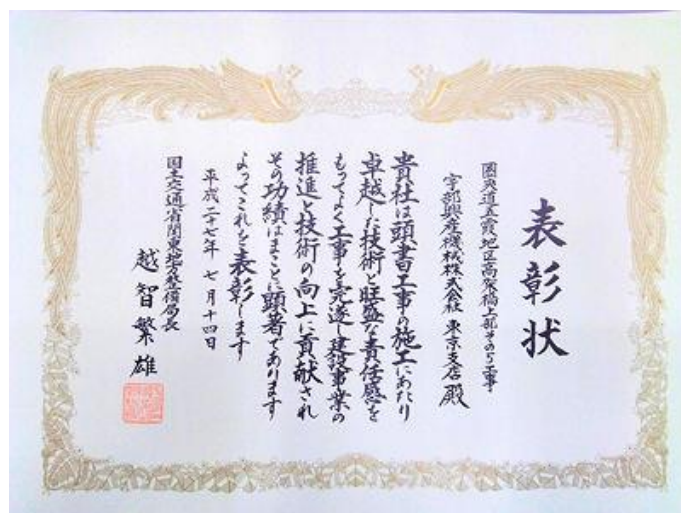 表彰状
圏央道五霞地区高架橋上部その5工事
宇部興産機械株式会社 東京支店 殿
貴社は頭書工事の施工にあたり
卓越した技術と旺盛な責任感を
もってよく工事を完遂し建設事業の
推進と技術の向上に貢献され
その功績はまことに顕著であります
よってこれを表彰します
平成二十七年 七月十四日
国土交通省関東地方整備局長
越智繁雄